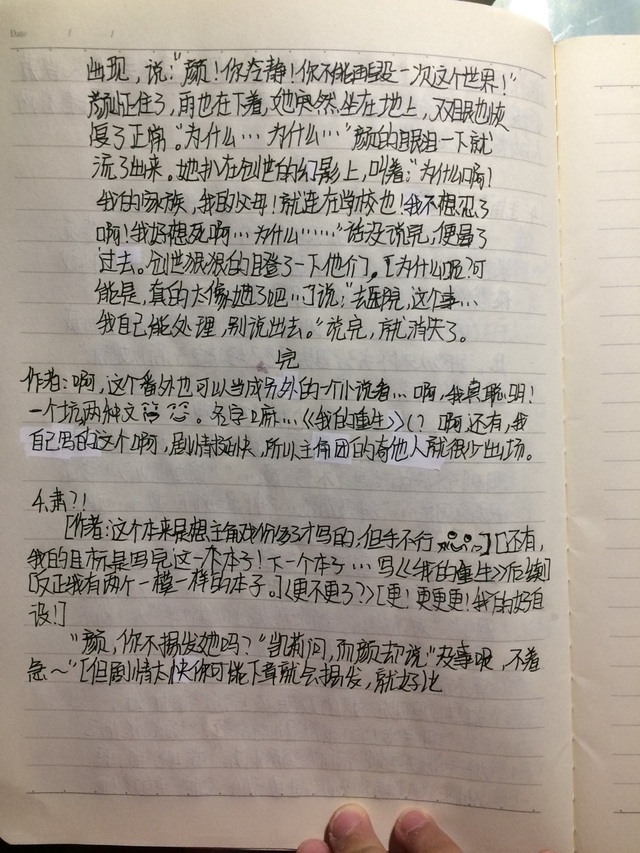 Date / /
出现，说："颜！你冷静！你不能再毁一次这个世界！"
颜怔住了，雨也在下着，她突然坐在地上，双眼也恢
复了正常。"为什么…为什么……"颜的眼泪一下就
流了出来。她扒在创世的幻影上，叫着："为什么啊！
我的家族，我的父母！就连在学校也！我不想忍了
啊！我好想死啊…为什么……"话没说完，便晕了
过去。创世狠狠的瞪了一下他们，[为什么呢？可
能是，真的太像她了吧…]说："去医院，这个事…
我自己能处理，别说出去。"说完，就消失了。
完
作者：啊，这个番外也可以当成另外的一个小说看…啊，我真聪明！
一个坑，两种文。名字嘛…《我的重生》(？啊还有，我
自己写的这个啊，剧情挺快，所以主角团的其他人就很少出场。
4.肃？！
[作者：这个本来是想主角戏份多了才写的，但手不行][还有，
我的目标是写完这一个本子！下一个本子…写《我的重生》后续]
[反正我有两个一模一样的本子。]<更不更了？>[更！更更更！我的好自
设！]
"颜，你不揭发她吗？"凯莉问，而颜却说"没事哦，不着
急～"[但剧情太快你可能下章就会揭发，就好比